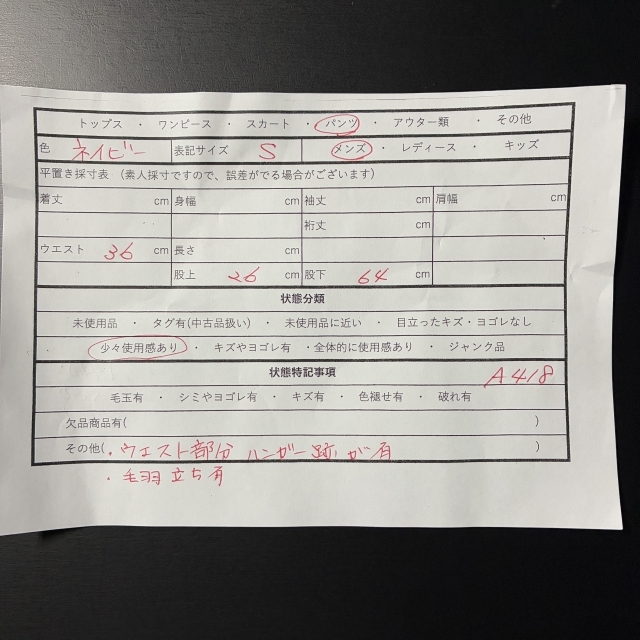 トップス ・ ワンピース ・ スカート ・ パンツ ・ アウター類 ・ その他
色 ネイビー 表記サイズ S メンズ ・ レディース ・ キッズ
平置き採寸表 (素人採寸ですので、誤差がでる場合がございます)
着丈 cm 身幅 cm 袖丈 cm 肩幅 cm
裄丈 cm
ウエスト 36 cm 長さ cm
股上 26 cm 股下 64 cm
状態分類
未使用品 ・ タグ有(中古品扱い) ・ 未使用品に近い ・ 目立ったキズ・ヨゴレなし
少々使用感あり ・ キズやヨゴレ有 ・全体的に使用感あり ・ ジャンク品
状態特記事項 A418
毛玉有 ・ シミやヨゴレ有 ・ キズ有 ・ 色褪せ有 ・ 破れ有
欠品商品有( )
その他(・ウエスト部分 ハンガー跡が有 )
・毛羽立ち有